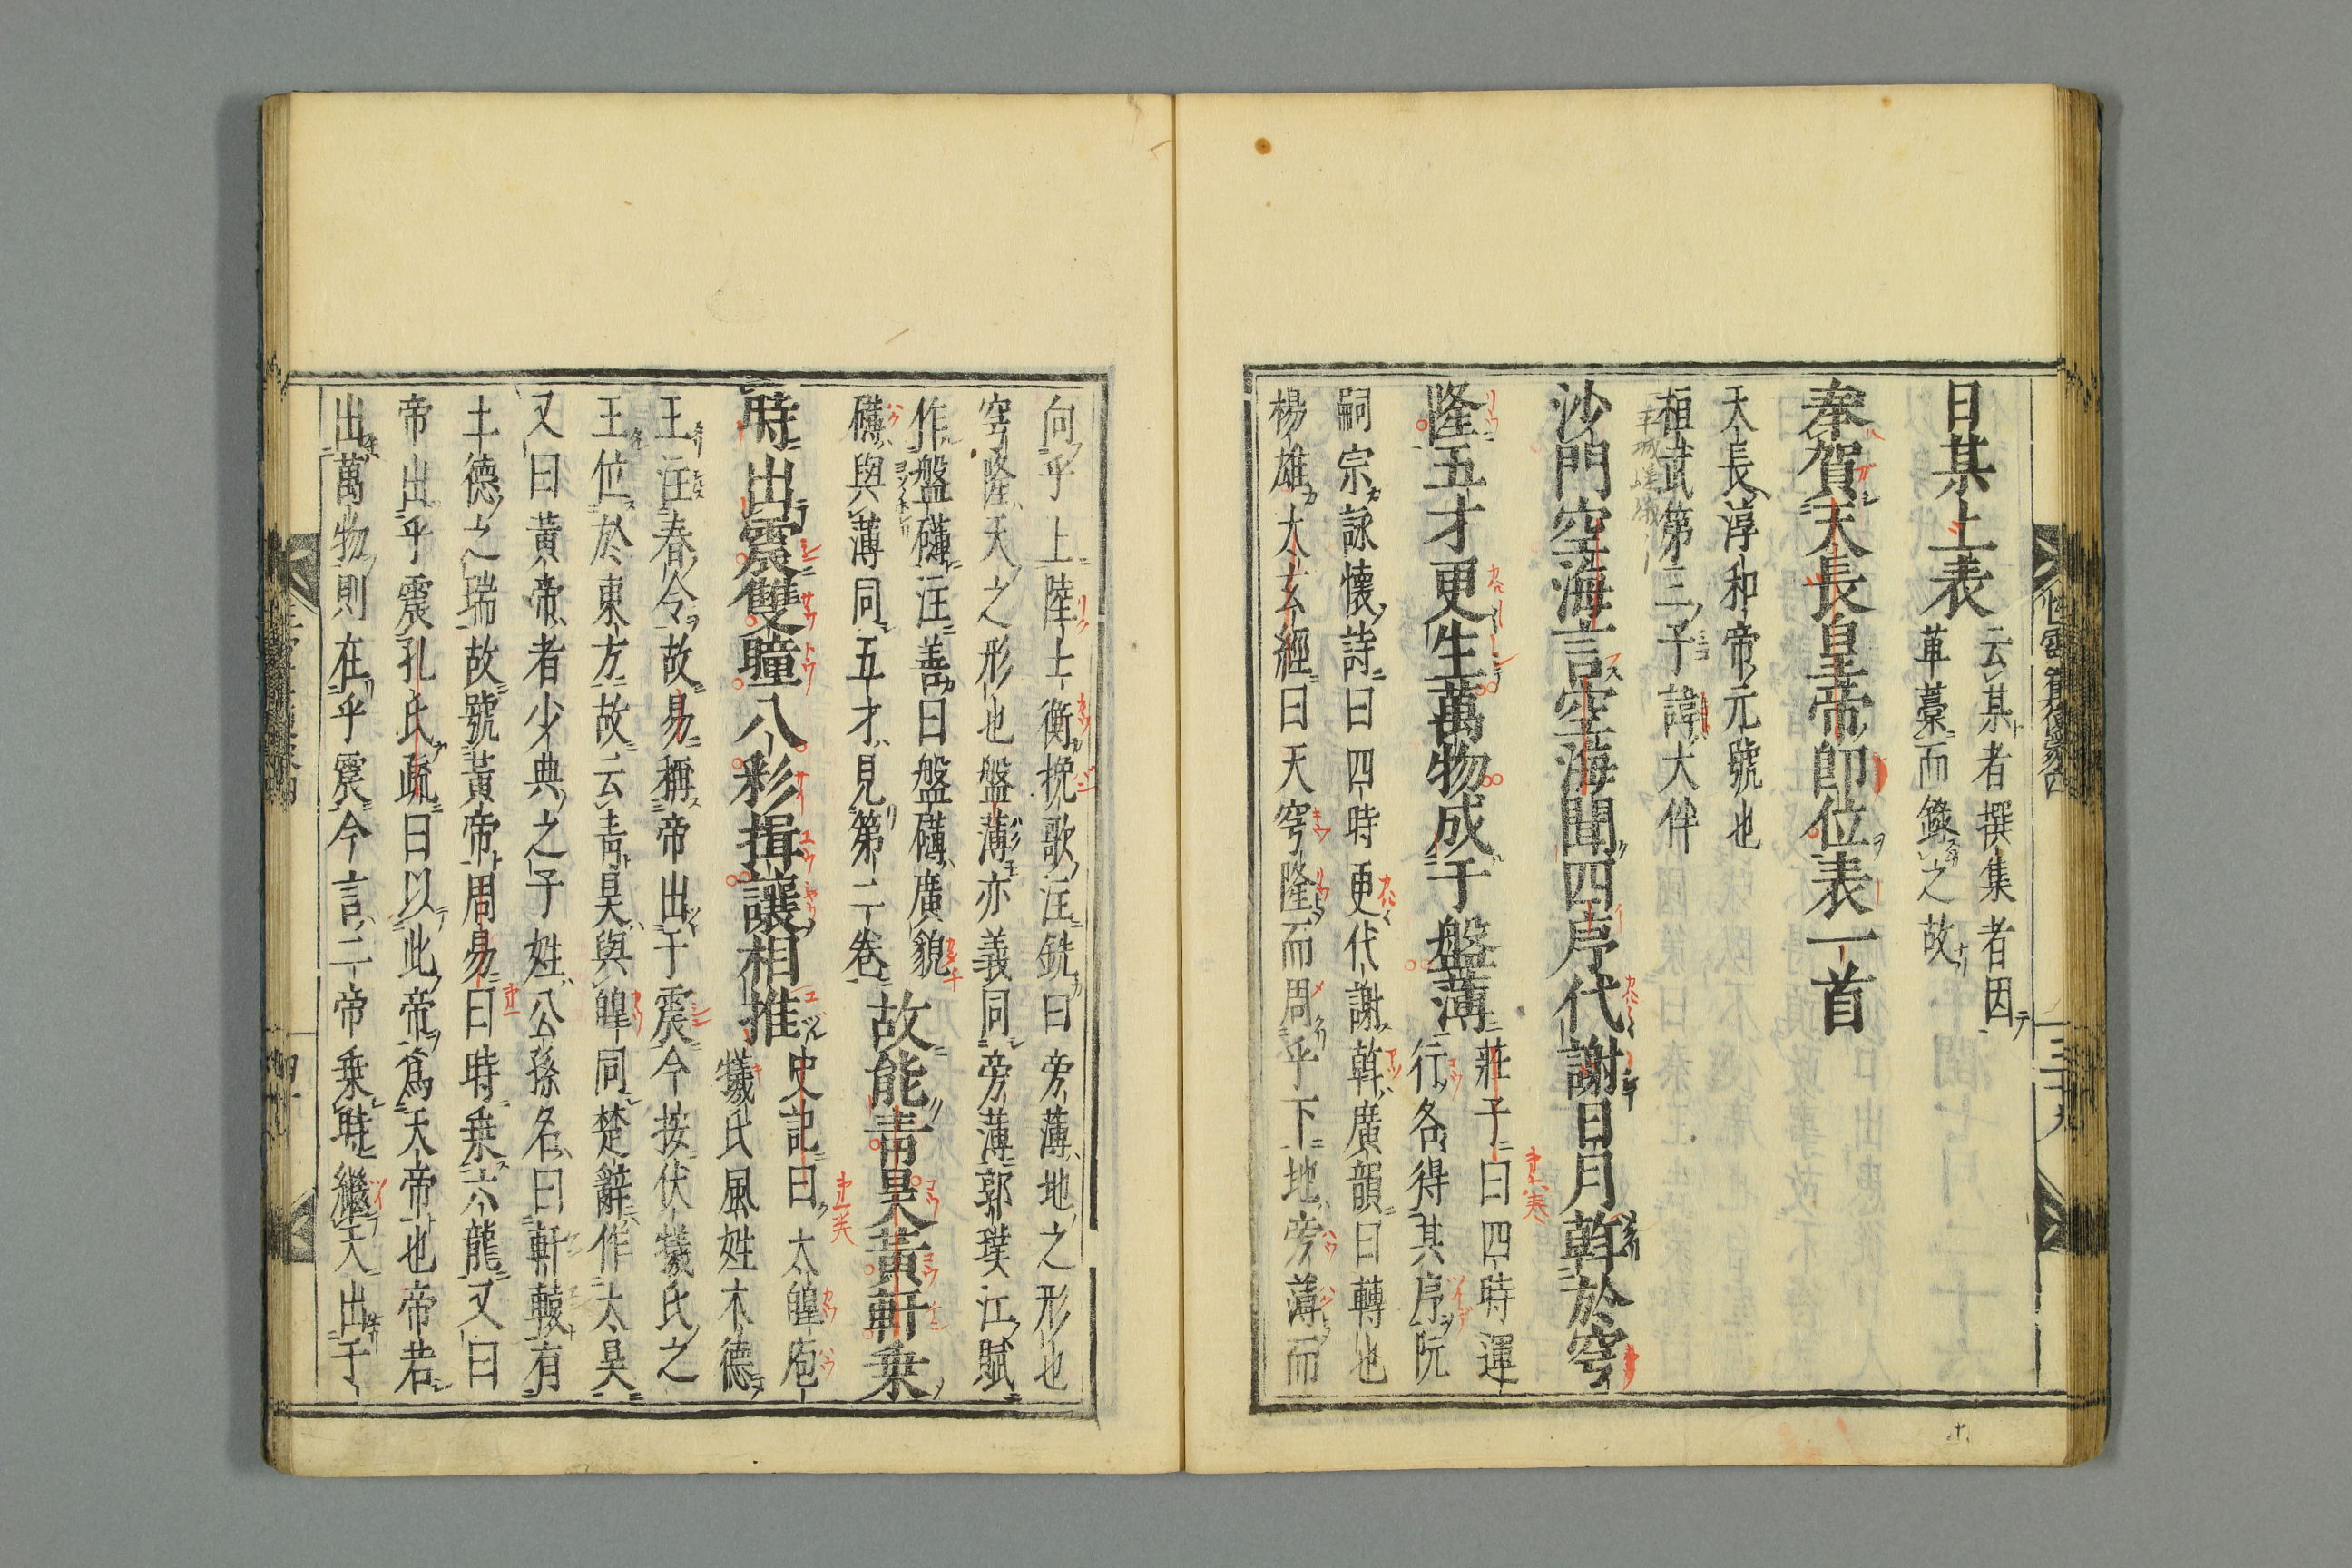 日某上表
云某者撰集者因
草藁而錄之故
奉賀天長皇帝即位表一首
天長淳和帝元號也
桓武第三子諱大伴
沙門空海言空海聞四序代謝日月斡於穹
隆五才更生萬物成于盤薄
莊子曰四時運
行各得其序阮
嗣宗詠懷詩曰四時更代謝斡廣韻曰轉也
楊雄太玄經曰天穹隆而周乎下地旁薄而
向乎上陸士衡挽歌注銑曰旁薄地之形也
穹隆天之形也盤薄亦義同旁薄郭璞江賦
作盤礴注善曰盤礴廣貌
礴與薄同五才見第二卷
故能靑昊黃軒乗
時出震雙瞳八彩揖讓相推
史記曰太皡庖
犧氏風姓木德
王注春令故易稱帝出于震今按伏犧氏之
王位於東方故云靑昊與皡同楚辭作太昊
又曰黃帝者少典之子姓公孫名曰軒轅有
土德之瑞故號黃帝周易曰時乗六龍又曰
帝出乎震孔氏疏曰以此帝爲天帝也帝若
出萬物則在乎震今言二帝乗時繼天出于